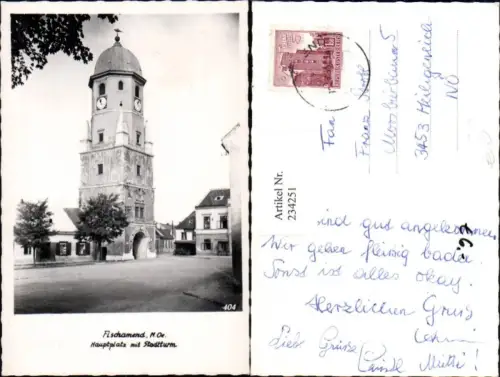 404
Fischamend, N. Oe.
Hauptplatz mit Stadtturm
Artikel Nr.
234251
Fam
Franz
3453 Heiligeneich
NÖ
ind gut angekommen
Wir gehen fleißig baden.
Sonst ist alles okay.
Herzlichen Gruß
Liebe Grüße